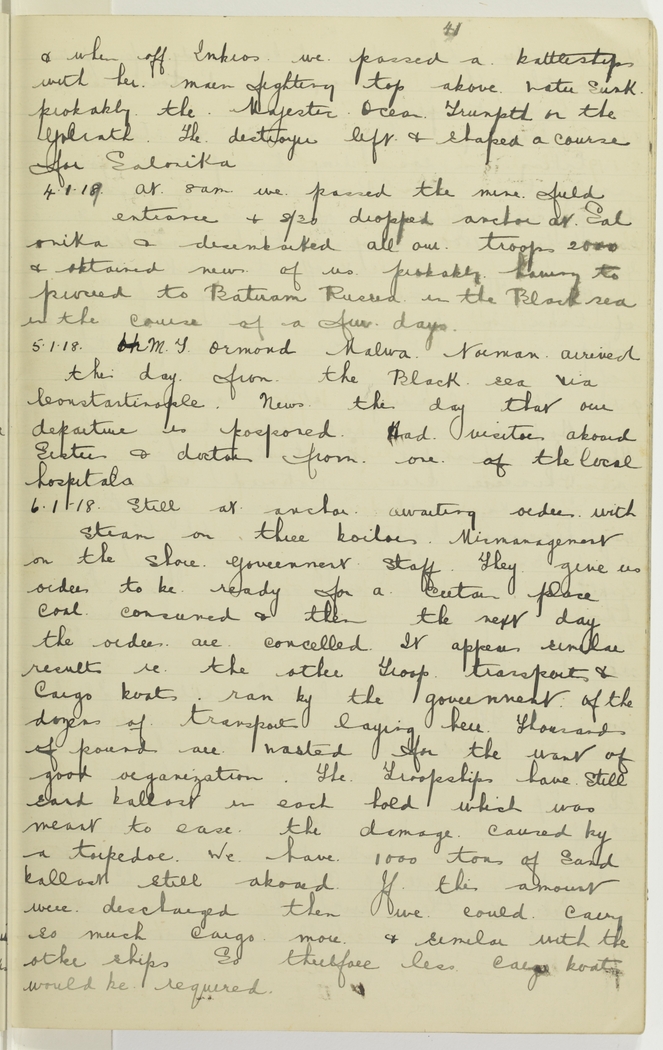 41
& when off Imbros. we. passed a. battleships
with her. main fighting top above water Sunk.
probably the. Majestic. Ocean. Triumpth or the
Goliath. The destroyer left & shaped a course
for Salonika
4.1.19. at 8am we. passed the mine. field
entrance & 8/30 dropped anchor at. Sal
onika & desembarked all our. troops 2000
& obtained news of us probably. having to
proceed to Batuam Russia in the Black sea
in the course of a few days.
5.1.18. HM.T. Ormond Malwa. Norman. arrived
this day. from. the Black sea via
Constantinople. News. this day that our
departure is posponed. Had visitors aboard
Sisters & doctors from. one. of the local
hospitals
6.1.18. Still at anchor. awaiting orders with
Steam on three boilers. Mismanagement
on the Shore Government Staff. They give us
orders to be. ready for a Certain place
Coal consumed & then the next day
the orders are concelled. It appears similar
results re. the other Troop. transports &
Cargo boats. ran by the government. of the
dozens of transports laying here. Thousands
of pounds are. wasted for the want of
good organization. The. Troopships have. still
sand ballast in each hold which was
meant to ease. the damage. caused by
a torpedoe. We. have. 1000 tons of Sand
ballast still aboard. If this amount
were. discharged then we. could. carry
so much Cargo more. & similar with the
other ships So therefore less cargo boats
would be required.